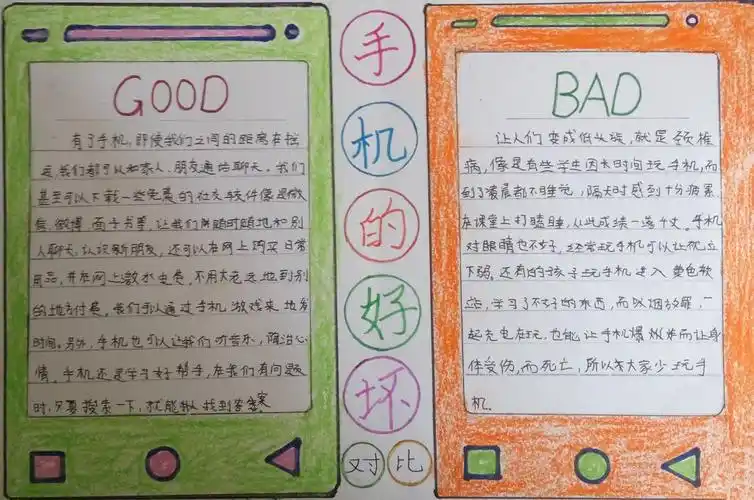 GOOD
有了手机,即使我们之间的距离在遥
远,我们都可以和家人、朋友通话聊天。我们
甚至可以下载一些免费的社交软件像是微
信、微博、面子书等,让我们随时随地和别
人聊天,认识新朋友,还可以在网上购买日常
用品,并在网上缴水电费,不用大老远地到别
的地方付费。我们可以通过手机游戏来地发
时间。另外,手机也可以让我们听音乐,陶冶心
情。手机还是学习好帮手,在我们有问题
时,只要搜索一下,就能找到答案
手
机
的
好
坏
对比
BAD
让人们变成低头族,就是颈椎
病,像是有些学生因长时间玩手机,而
到了凌晨都不睡觉,隔天时感到十分疲累,
在课堂上打瞌睡,从此成绩一落千丈。手机
对眼睛也不好,经常玩手机可以让视力
下弱。还有的孩子玩手机进入黄色软
,学习了不好的东西,而吸烟放罪,
起充电在玩,也能让手机爆炸而让身
体受伤,而死亡,所以大家少玩手
机。